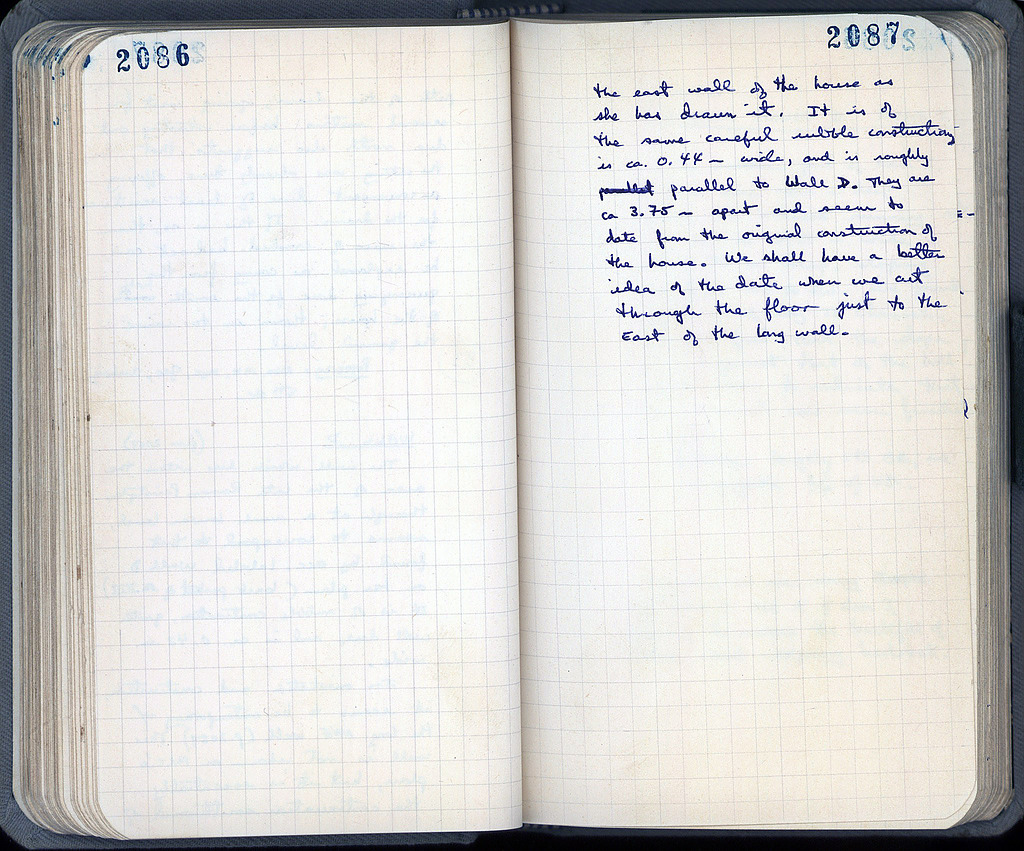 2086
2087
the east wall of the house as
she has drawn it. It is of
the same careful rubble construction,
is ca. 0.44 m wide, and is roughly
parallel parallel to Wall D. They are
ca 3.75 m apart and seem to
date from the original construction of
the house. We shall have a better
idea of the date when we cut
through the floor just to the
East of the long wall.